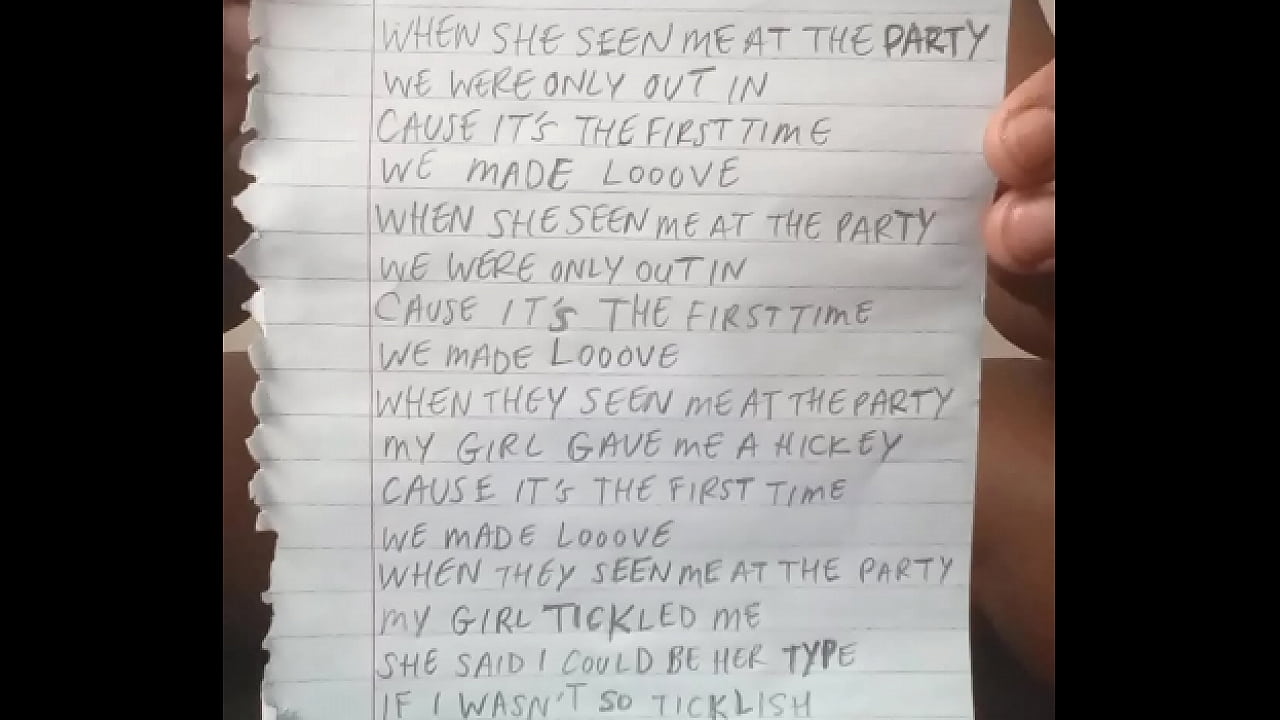 WHEN SHE SEEN ME AT THE PARTY
WE WERE ONLY OUT IN
CAUSE IT'S THE FIRST TIME
WE MADE LOOOVE
WHEN SHE SEEN ME AT THE PARTY
WE WERE ONLY OUT IN
CAUSE IT'S THE FIRST TIME
WE MADE LOOOVE
WHEN THEY SEEN ME AT THE PARTY
MY GIRL GAVE ME A HICKEY
CAUSE IT'S THE FIRST TIME
WE MADE LOOOVE
WHEN THEY SEEN ME AT THE PARTY
MY GIRL TICKLED ME
SHE SAID I COULD BE HER TYPE
IF I WASN'T SO TICKLISH